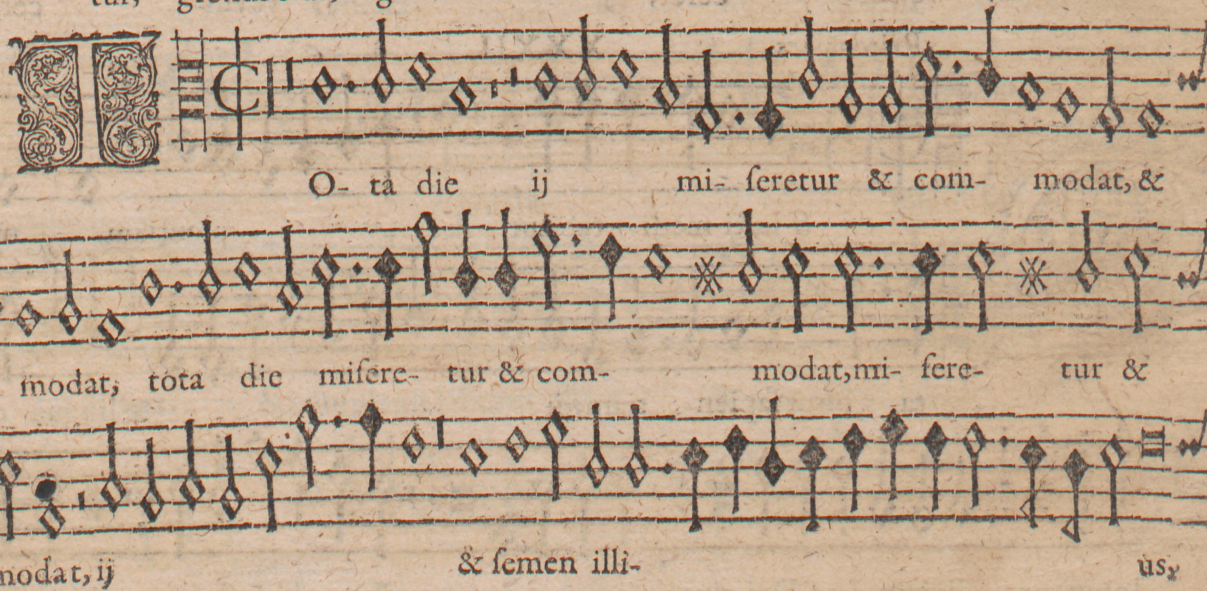 TO- ta die ij mi- ſeretur & com- modat, &
modat, tota die miſere- tur & com- modat, mi- ſere- tur &
modat, ij & ſemen illi- us,